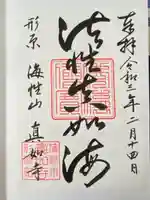 奉拝 令和三年二月十四日
法性真如海
形原 海性山 真如寺